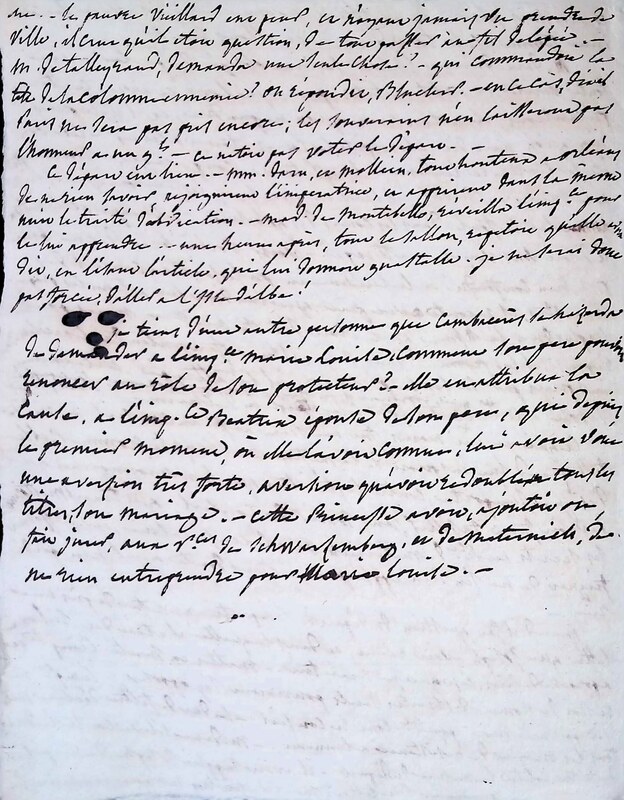 ne. - le pauvre vieillard eut peur, et n'ayant jamais vu prendre de
ville, il crut qu'il etoit question, de tout passer au fil de l'épée. -
m. de talleyrand, demanda une seule chose? - qui commandoit la
tete de la colonne ennemie? on répondit, Blucher. - en ce cas, dit-il
Paris ne sera pas pris encore; les souverains n'en laisseront pas
l'honneur a un g.al - ce n'étoit pas voter le départ. -
ce départ eut lieu. - mm. daru, et mollien, tout honteux a orléans
de ne rien savoir, rejoignirent l'imperatrice, et apprirent dans la meme
nuit le traité d'abdication. - mad. de montebello, réveilla l'imp.ce pour
le lui apprendre. - une heure après, tout le sallon, répétoit qu'elle
dit, en lisant l'article, qui lui donnoit guastalla. je ne serai donc
pas forcée, d'aller a l'isle d'elbe!
je tiens d'une autre personne que Cambacérès se hazarda
de demander a l'imp.ce marie Louise, comment son pere pouvoit
renoncer au rôle de son protecteur? - elle en attribua la
cause, a l'imp.ce Beatrix épouse de son pere, qui depuis
le premier moment, où elle l'avoit connue, lui avoit voué
une aversion très forte, aversion qu'avoit redoublée tous les
titres, son mariage. - cette Princesse avoit, ajoutoit on
fait jurer, aux p.ces de Schwartzemberg, et de metternich, de
ne rien entreprendre pour Marie Louise. -